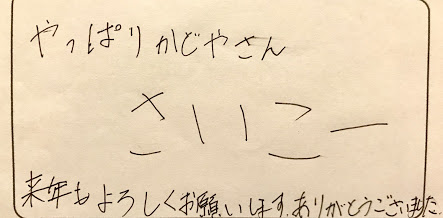 やっぱりかどやさん
さいこー
来年もよろしくお願いします。ありがとうございました